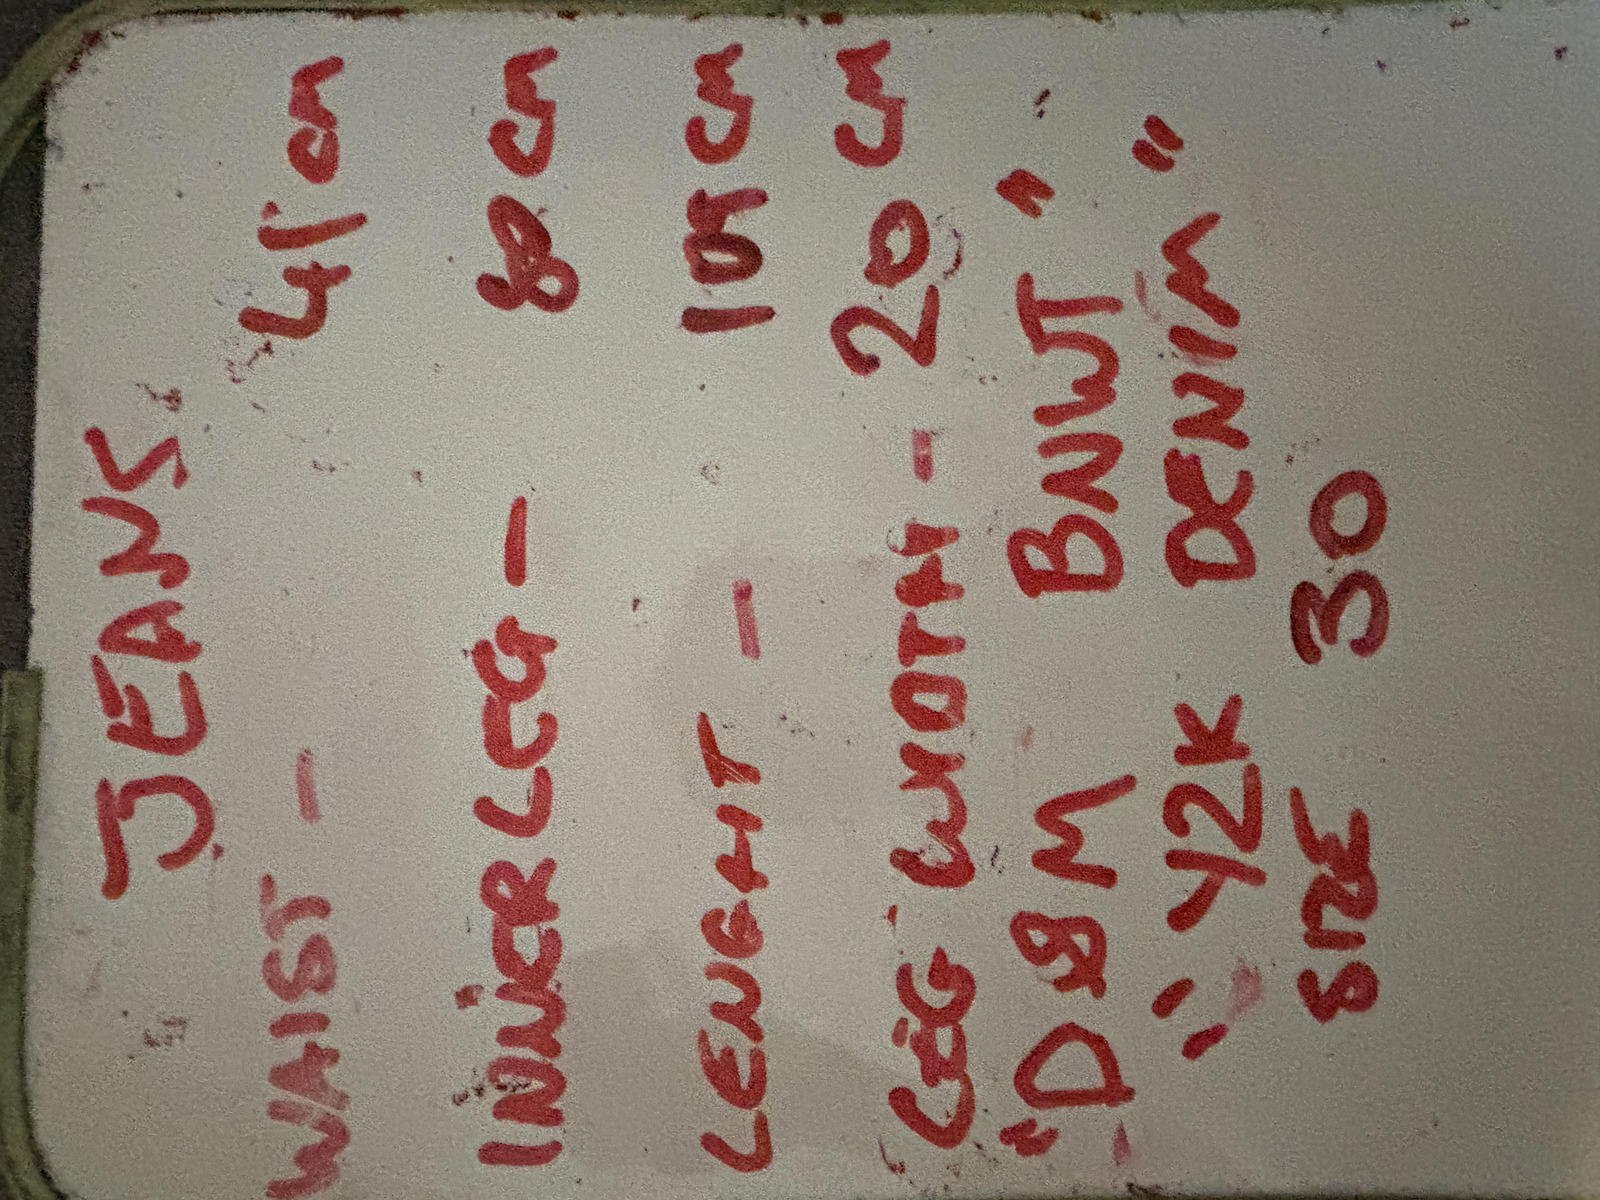 JEANS
WAIST - 41 cm
INNER LEG - 80 cm
LENGHT - 105 cm
LEG WIDTH - 20 cm
"D&M BNWT"
"Y2K DENIM"
SIZE 30